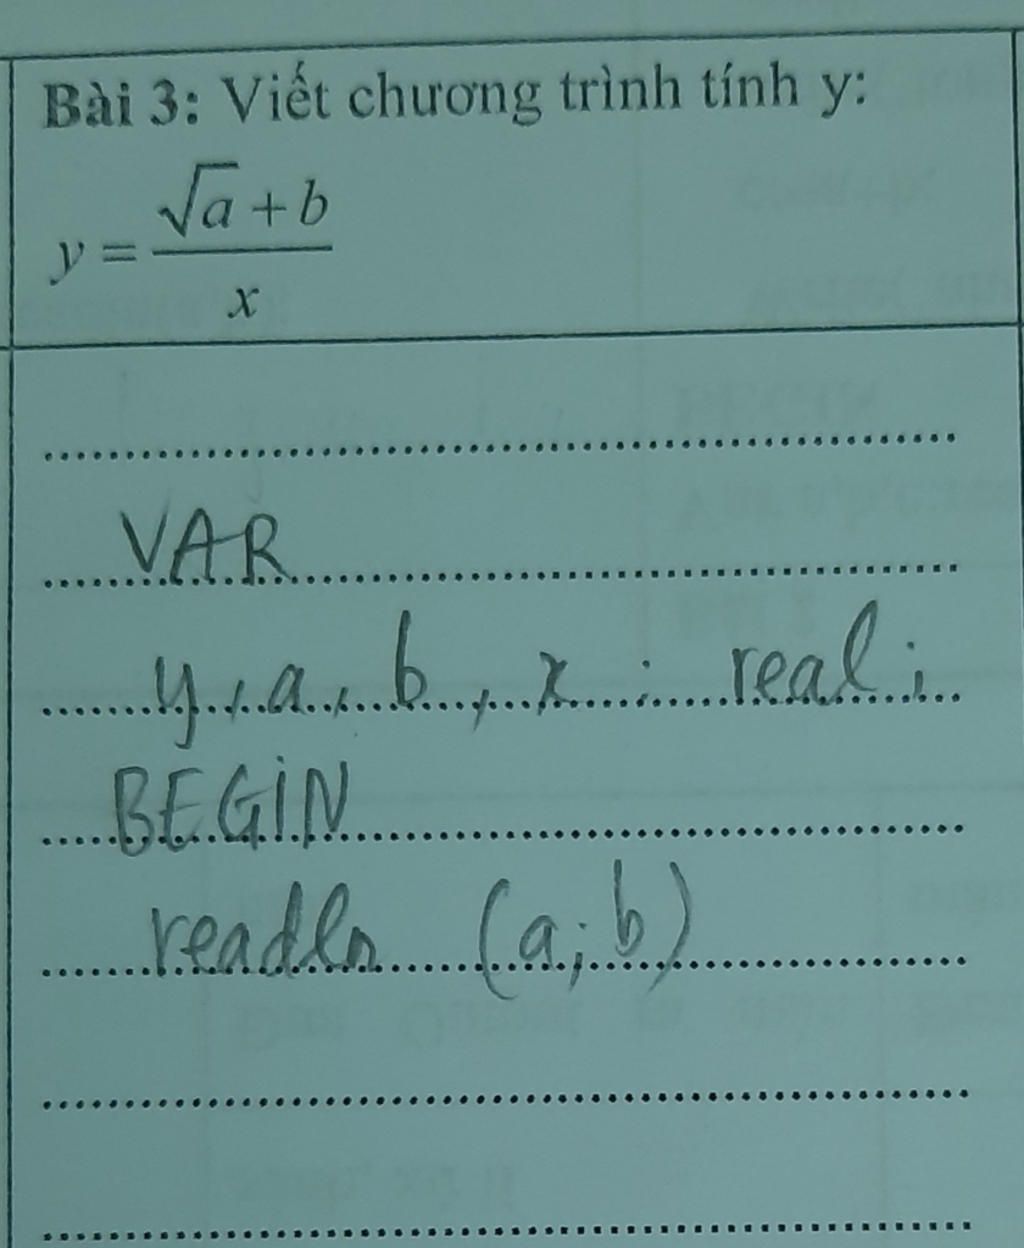 Bài 3: Viết chương trình tính y:
y = (√a + b) / x
VAR
y, a, b, x : real;
BEGIN
readln (a; b)